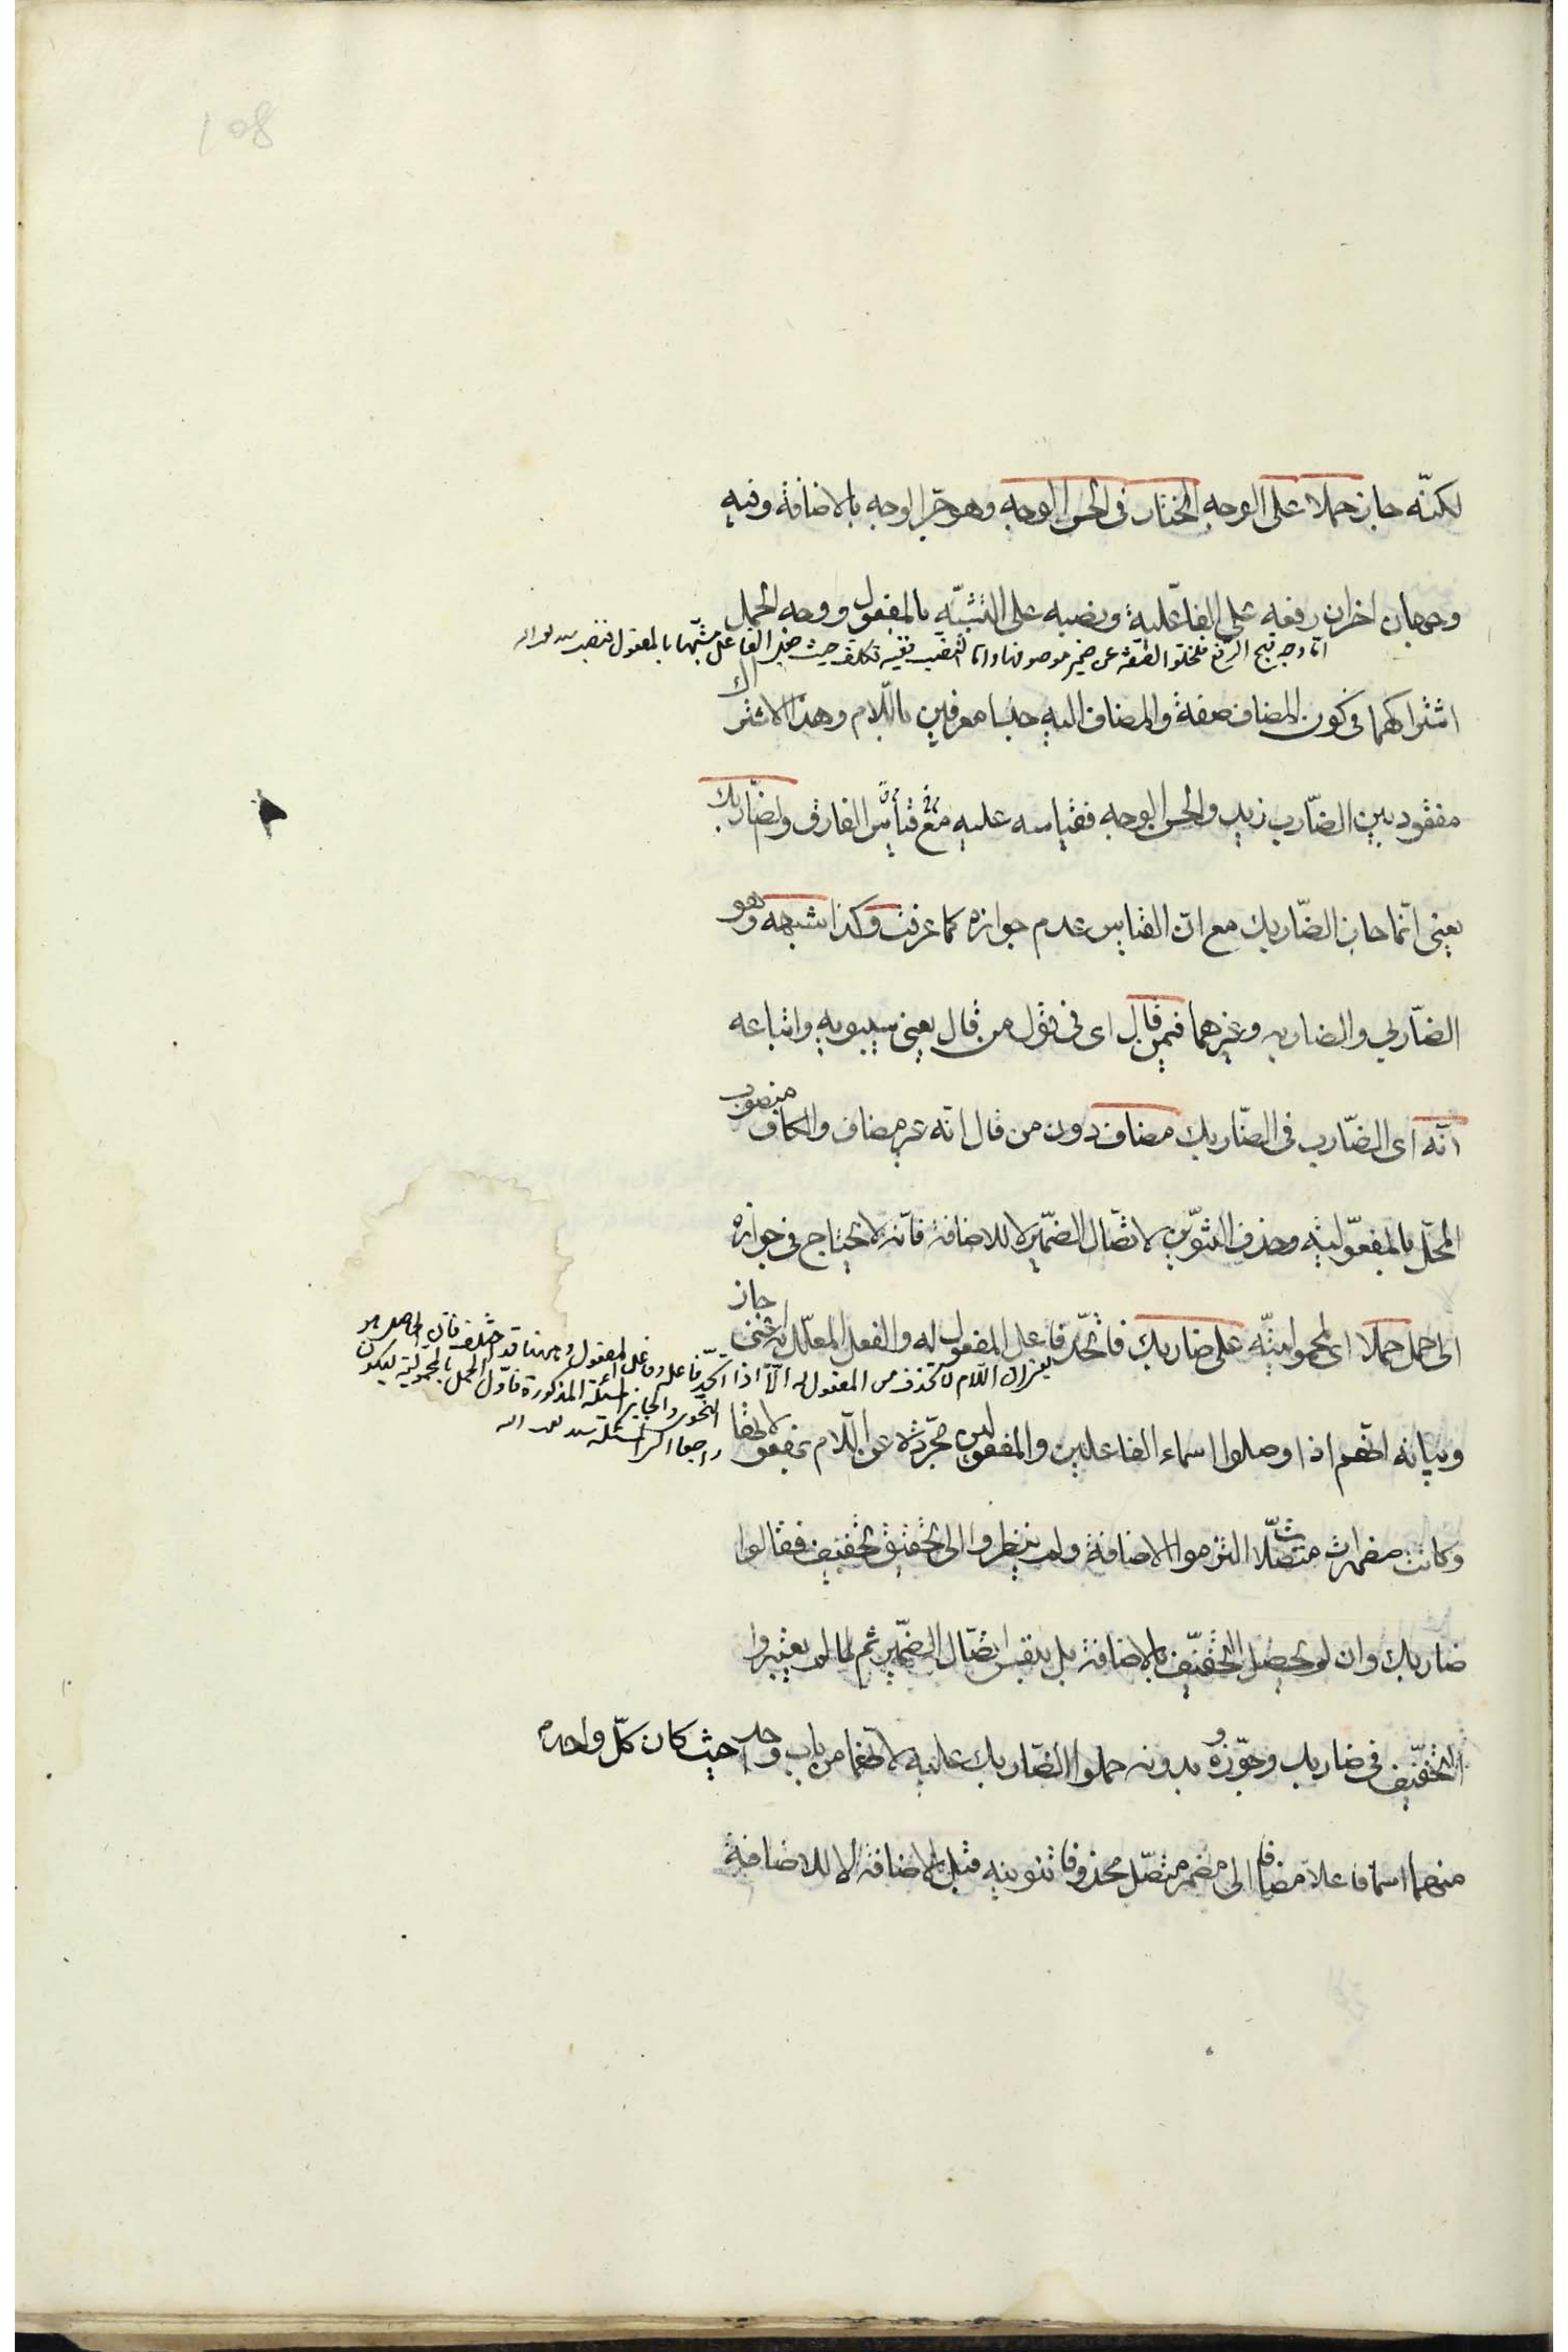 108
لكنّه جاز حملا على الوجه المختار فى الحسن الوجه وهو جرّ الوجه بالاضافة وفيه
وجهان اخران رفعه على الفاعلية ونصبه على التشبّه بالمفعول ووجه الحمل
امّا وجه قبح الرفع فلخلو الصفة عن ضمير موصوفها وامّا النصب ففيه تكلف حيث الفاعل مشبّها بالمفعول
اشتراكهما فى كون المضاف صفة والمضاف اليه جنسا معرفين باللّام وهذا الاشتراك
مفقود بين الضّارب زيد والحسن الوجه فقياسه عليه مع الفارق والضّاربك
يعنى انّما جاز الضّاربك مع انّ القياس عدم جوازه كما عرفت وكذا شبهه وهو
الضّاربى والضاربه وغيرهما فيمن قال اى فى قول من قال يعنى سيبويه واتباعه
انّه اى الضّارب فى الضّاربك مضاف دون من قال انّه غير مضاف والكاف منصوب
المحلّ بالمفعوليّه وحذف التنوين لاتّصال الضّمير لا للاضافة فانّه لا يحتاج فى جوازه
الى حمل حملا اى لمحموليّته على ضاربك فاتّحد فاعل المفعول له والفعل المعلّل به اعنى جاز
اللّام لا تحذف من المفعول له الّا اذا اتّحد فاعله وفاعل
وبيانه انّهم اذا وصلوا اسماء الفاعلين والمفعولين مجرّدة عن اللّام بمفعولاتها
وكانت مضمرات متّصلات التزموا الاضافة ولم ينظروا الى تحقيق تخفيف فقالوا
ضاربك وان لم يحصل التخفيف بالاضافة بل بنفس اتّصال الضّمير ثم لما لم يعتبروا
التخفيف فى ضاربك وجوّزوه بدونه حملوا الضّاربك عليه لانّهما من باب واحد حيث كان كلّ واحد
منهما اسما فاعلا مضافا الى مضمر متّصل محذوفا تنوينه قبل الاضافة لا للاضافة